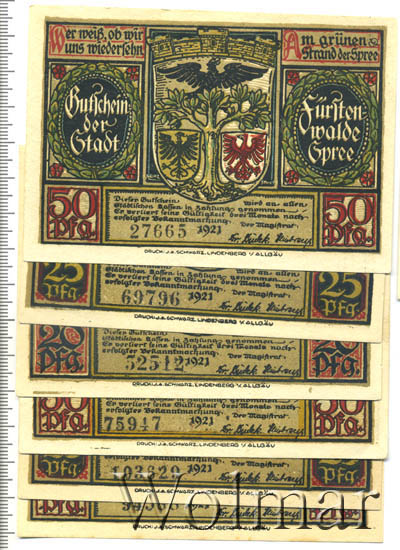 Wer weiß, ob wir
uns wiedersehn
Am grünen
Strand der Spree
Gutschein
der
Stadt
Fürsten
walde
Spree
50
Pfg.
Dieser Gutschein wird an allen
städtischen Kassen in Zahlung genommen
Er verliert seine Gültigkeit drei Monate nach
erfolgter Bekanntmachung. Der Magistrat.
27665 1921
50
Pfg.
DRUCK: J.A. SCHWARZ, LINDENBERG V. ALLGÄU
25
Pfg.
städtischen Kassen in Zahlung genommen
Er verliert seine Gültigkeit drei Monate nach
erfolgter Bekanntmachung. Der Magistrat.
69796 1921
25
Pfg.
DRUCK: J.A. SCHWARZ, LINDENBERG V. ALLGÄU
20
Pfg.
Dieser Gutschein wird an allen
städtischen Kassen in Zahlung genommen
Er verliert seine Gültigkeit drei Monate nach
erfolgter Bekanntmachung. Der Magistrat.
52512 1921
20
Pfg.
DRUCK: J.A. SCHWARZ, LINDENBERG V. ALLGÄU
50
Pfg.
Er verliert seine Gültigkeit drei Monate nach
erfolgter Bekanntmachung. Der Magistrat.
75947 1921
50
Pfg.
DRUCK: J.A. SCHWARZ, LINDENBERG V. ALLGÄU
Pfg.
erfolgter Bekanntmachung. Der Magistrat.
1921
Pfg.
DRUCK: J.A. SCHWARZ, LINDENBERG V. ALLGÄU
Pfg.
1921
Pfg.
DRUCK: J.A. SCHWARZ, LINDENBERG V. ALLGÄU
Wolmar